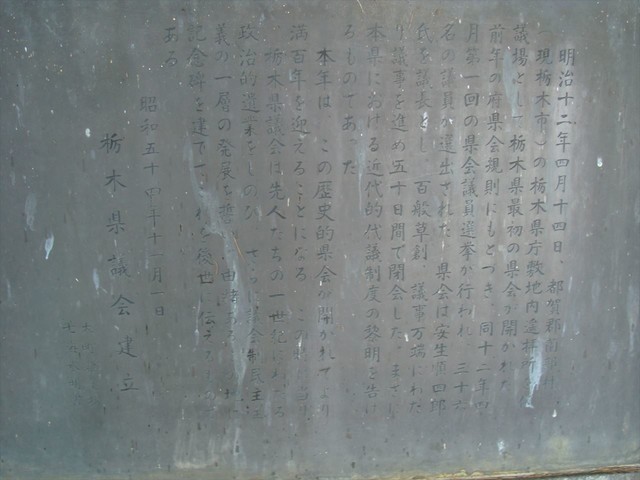 明治十二年四月十四日、都賀郡
(現栃木市)の栃木県庁敷地内遙拝所
議場として栃木県最初の県会が開かれた
前年の府県会規則にもとづき、同十二年四
月第一回の県会議員選挙が行われ、三十六
名の議員が選出された 県会は安生順四郎
氏を議長とし、百般草創、議事万端にわた
り議事を進め五十日間で閉会した。まさに
本県における近代的代議制度の黎明を告げ
るものであった
本年は、この歴史的県会が開かれてより
満百年を迎えることになる この
栃木県議会は先人たちの一世紀にわたる
政治的遺業をしのび、さらに議会制民主主
義の一層の発展を
記念碑を建て これを後世に伝える
ある
昭和五十四年十一月一日
栃木県議会建立